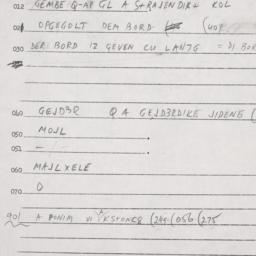 012 GEMBE Q-AP GL A STRAJENDIKN KOL
021 OPGEGOLT DEM BORD (40F
030 DER BORD IZ GEVEN CU LANJG = DI BOR
040 GEJDER Q A GEJDERDIKE JIDENE (
050 MOJL
051 —
060 MAJLXELE
070 O
901 A PONIM VI A KSFONCQ (244 (056 (275